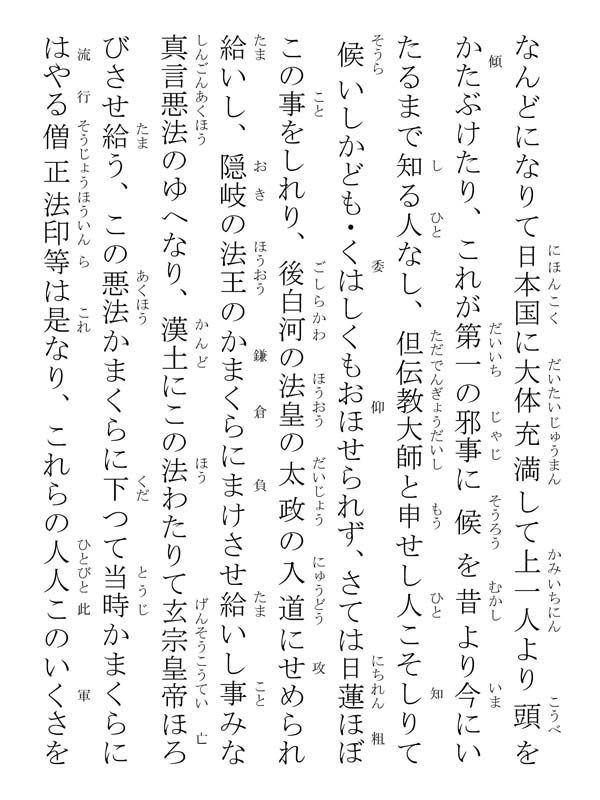 なんどになりて日本国に大体充満して上一人より頭を
かたぶけたり、これが第一の邪事に候を昔より今にい
たるまで知る人なし、但伝教大師と申せし人こそしりて
候いしかども・くはしくもおほせられず、さては日蓮ほぼ
この事をしれり、後白河の法皇の太政の入道にせめられ
給いし、隠岐の法王のかまくらにまけさせ給いし事みな
真言悪法のゆへなり、漢土にこの法わたりて玄宗皇帝ほろ
びさせ給う、この悪法かまくらに下つて当時かまくらに
はやる僧正法印等は是なり、これらの人人このいくさを